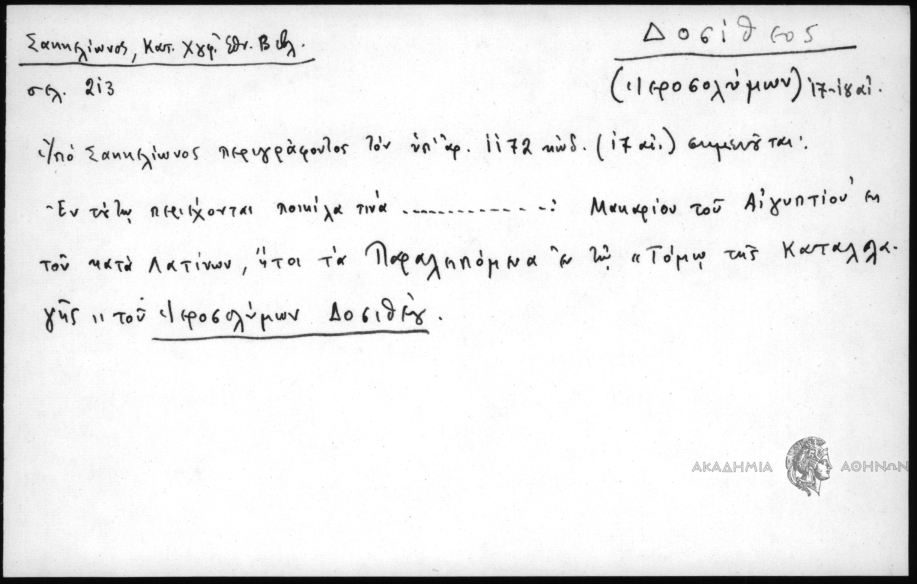 Σακκελίωνος, Κατ. Χγφ. Εθν. Βιβλ.
σελ. 213
Δοσίθεος
(Ἱεροσολύμων) 17-18 αἰ.
Ὑπό Σακκελίωνος περιγράφοντος τόν ὑπ' ἀρ. 1172 κώδ. (17 αἰ.) σημειοῦται:
Ἐν τούτῳ περιέχονται ποικίλα τινά ..............: Μακαρίου τοῦ Αἰγυπτίου ἐκ
τοῦ κατά Λατίνων, ἤτοι τά Παραλειπόμενα ἐν τῷ "Τόμῳ τῆς Καταλλα-
γῆς" τοῦ Ἱεροσολύμων Δοσιθέου.
ΑΚΑΔΗΜΙΑ ΑΘΗΝΩΝ